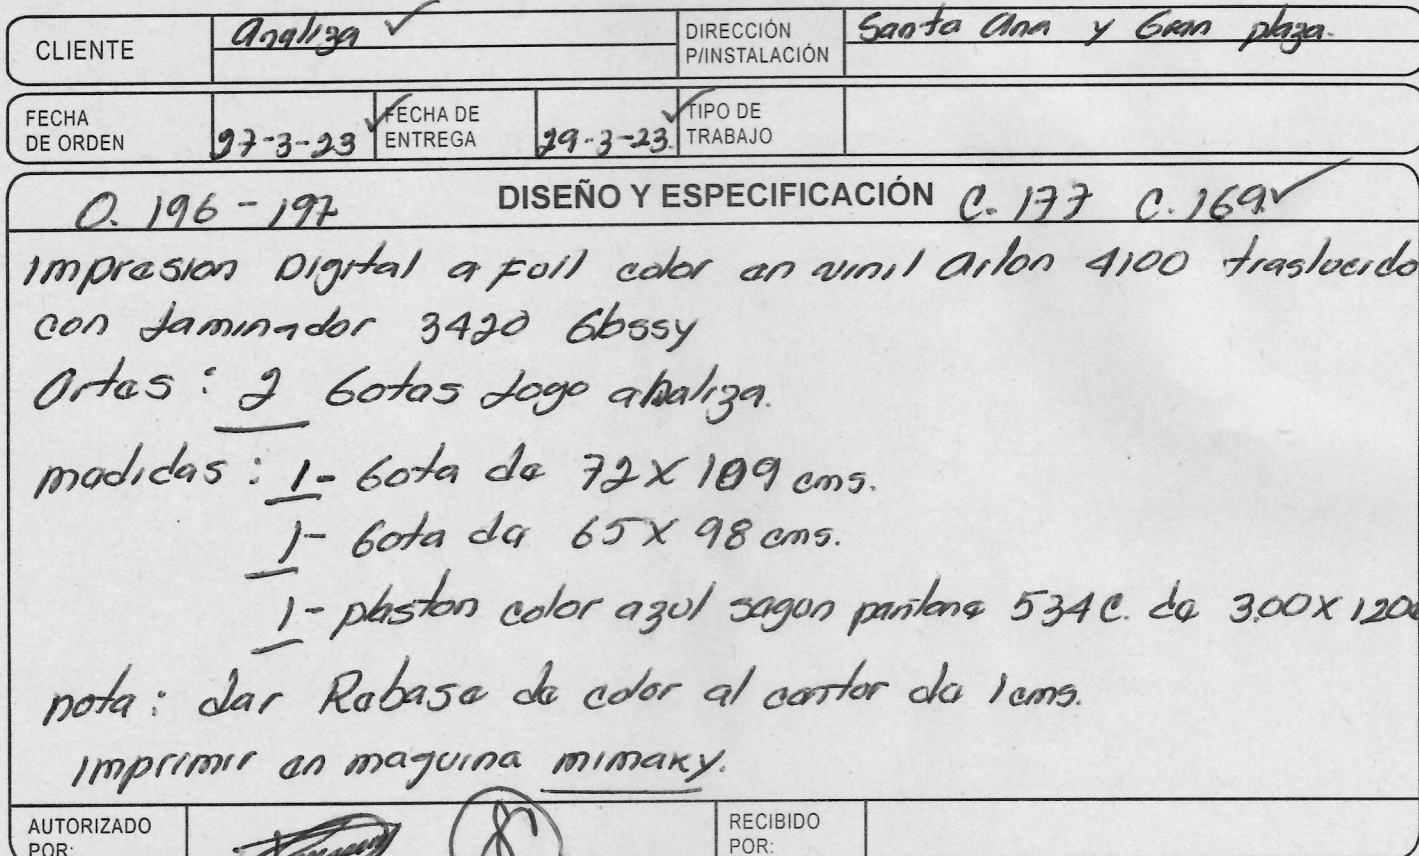 CLIENTE Analiza ✓ DIRECCIÓN P/INSTALACIÓN Santa Ana y Gran plaza.
FECHA DE ORDEN 27-3-23 ✓ FECHA DE ENTREGA 29-3-23 ✓ TIPO DE TRABAJO
DISEÑO Y ESPECIFICACIÓN
O. 196 - 197 C. 177 C. 169 ✓
Impresion Digital a Full color en vinil Arlon 4100 traslucido
con Laminador 3420 Glossy
Artes : 2 Gotas Logo analiza.
medidas : 1- Gota de 72 X 109 cms.
1- Gota de 65 X 98 cms.
1- plaston color azul segun pantone 534 C. de 3.00 X 120
nota : dar Rebase de color al contor de 1 cms.
Imprimir en maquina mimaky.
AUTORIZADO POR: RECIBIDO POR: